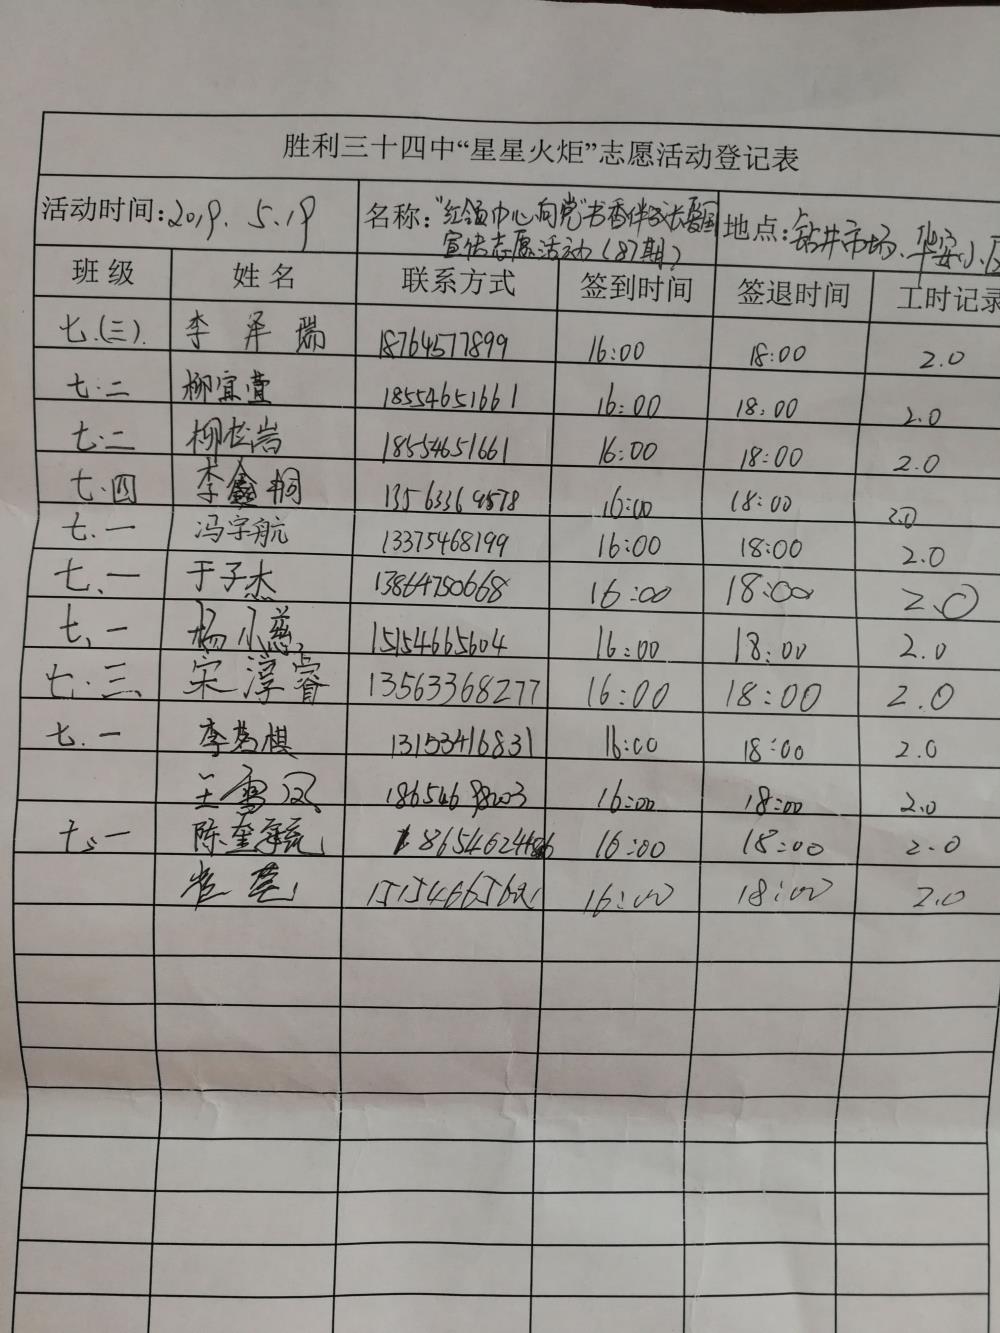 胜利三十四中“星星火炬”志愿活动登记表
活动时间:2019.5.19 名称:“红领巾心向党”书香伴成长爱国宣传志愿活动(87期) 地点:钻井市场、华安小区
班级 姓名 联系方式 签到时间 签退时间 工时记录
七.(三). 李泽瑞 18764577899 16:00 18:00 2.0
七.二 柳宜萱 18554651661 16:00 18:00 2.0
七.二 柳岩 18554651661 16:00 18:00 2.0
七.四 李鑫桐 13563369578 16:00 18:00 2.0
七.一 冯宇航 13375468199 16:00 18:00 2.0
七、一 于子杰 13864750668 16:00 18:00 2.0
七、一 杨小慈 15154665604 16:00 18:00 2.0
七.三 宋淳睿 13563368277 16:00 18:00 2.0
七.一 李茗棋 13153416831 16:00 18:00 2.0
王 16:00 18:00 2.0
七、一 陈奎 16:00 18:00 2.0
崔 16:00 18:00 2.0